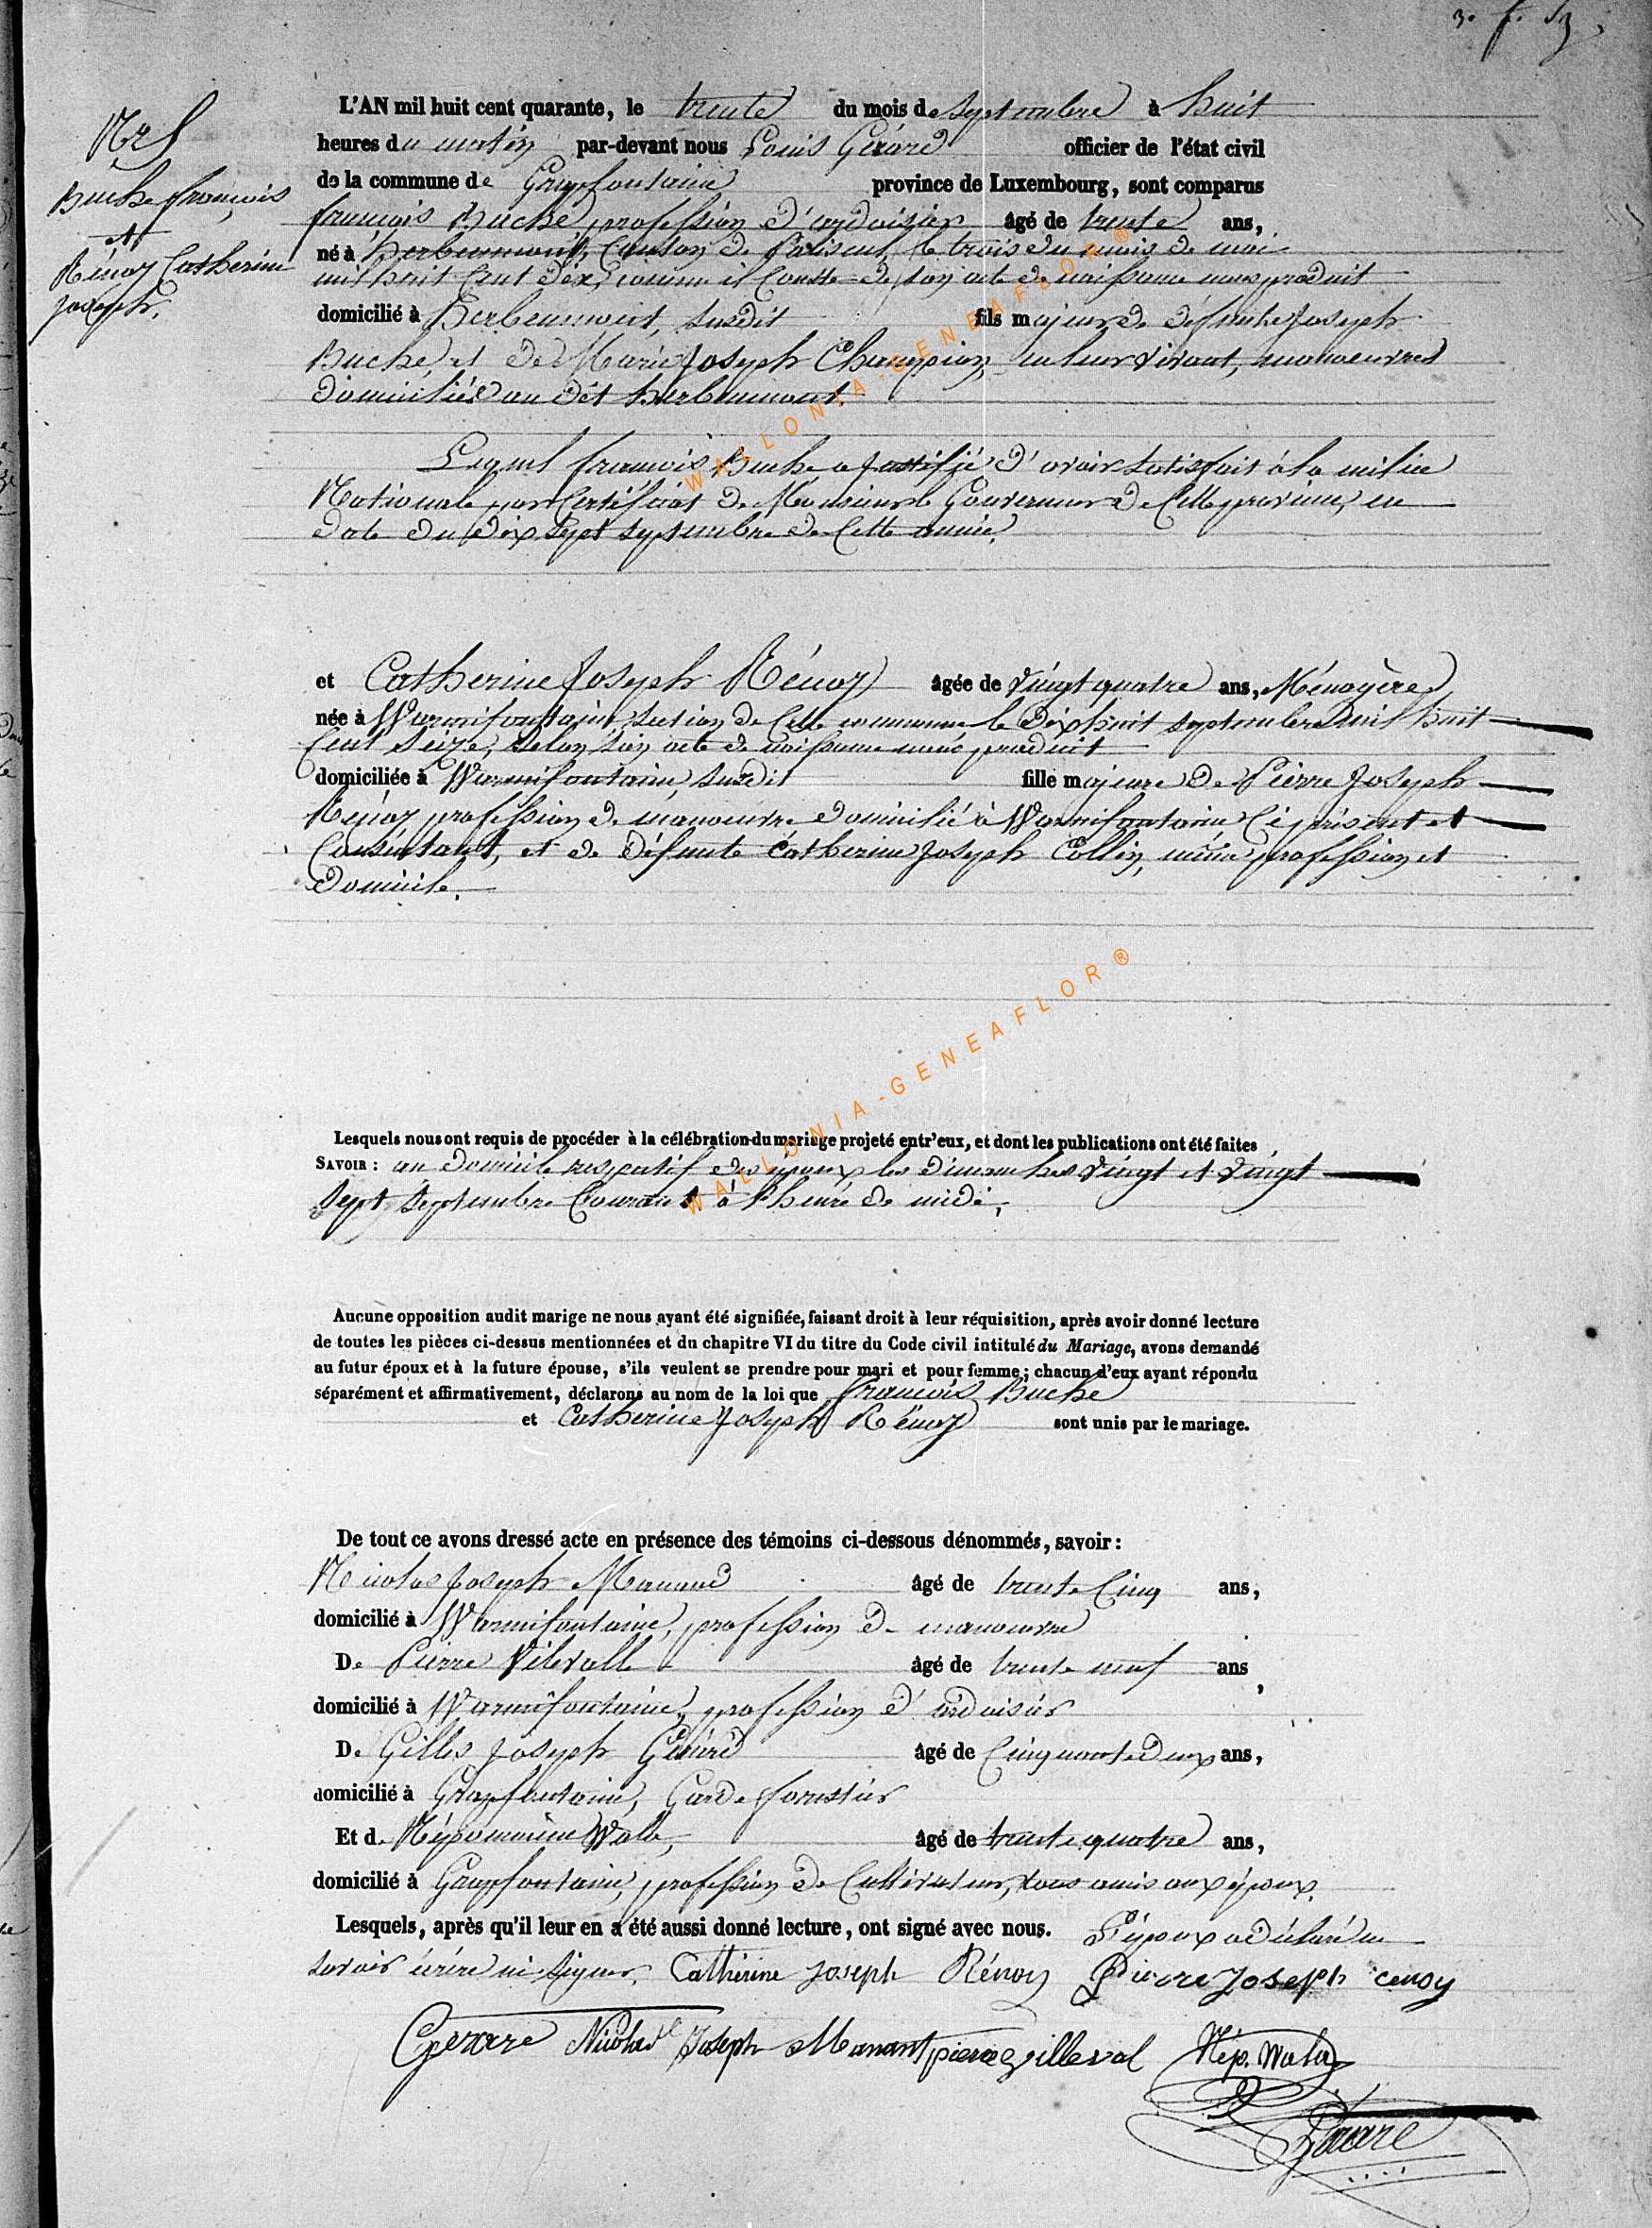 L'AN mil huit cent quarante, le trente du mois de septembre à huit
heures du matin par-devant nous Louis Gérard officier de l'état civil
de la commune de Grapfontaine province de Luxembourg, sont comparus
françois Buche, profession d'ardoisier âgé de trente ans,
né à herbeumont, Canton de Paliseul, le trois du mois de mai
mil huit Cent dix, comme il Conste de son acte de naissance nous produit
domicilié à Herbeumont, susdit fils majeur de défunts Joseph
Buche, et de Marie Joseph Champion, en leur vivant, manoeuvres
domiciliés au dit herbeumont
Lequel françois Buche a justifié d'avoir satisfait à la milice
Nationale par Certificat de Monsieur le Gouverneur de Cette province, en
date du dix sept septembre de Cette année.
Nr 5
Buche françois
et
Rénoy Catherine
joseph.
et Catherine Joseph Rénoy âgée de Vingt quatre ans, Ménagère,
née à Warmifontaine, section de Cette commune le dix huit septembre mil huit
Cent seize, selon son acte de naissance nous produit
domiciliée à Warmifontaine, susdit fille majeure de Pierre Joseph
Rénoy profession de manoeuvre domicilié à Warmifontaine Ci présent et
Consentant, et de défunte Catherine Joseph Collin, même profession et
domicile.
Lesquels nous ont requis de procéder à la célébration du mariage projeté entr'eux, et dont les publications ont été faites
SAVOIR : au domicile respectif des époux, les dimanches vingt et vingt
sept septembre Courant à l'heure de midi,
Aucune opposition audit marige ne nous ayant été signifiée, faisant droit à leur réquisition, après avoir donné lecture
de toutes les pièces ci-dessus mentionnées et du chapitre VI du titre du Code civil intitulé du Mariage, avons demandé
au futur époux et à la future épouse, s'ils veulent se prendre pour mari et pour femme ; chacun d'eux ayant répondu
séparément et affirmativement, déclarons au nom de la loi que françois Buche
et Catherine Joseph Rénoy sont unis par le mariage.
De tout ce avons dressé acte en présence des témoins ci-dessous dénommés, savoir :
Nicolas Joseph Manand âgé de trente Cinq ans,
domicilié à Warmifontaine, profession de manoeuvre
De Pierre Vilevalle âgé de trente neuf ans,
domicilié à Warmifontaine, profession d'ardoisier
De Gilles Joseph Gérard âgé de Cinquante deux ans,
domicilié à Grapfontaine, Garde forestier
Et de Népomucène Wala, âgé de trente quatre ans,
domicilié à Grapfontaine, profession de Cultivateur, tous amis aux époux.
Lesquels, après qu'il leur en a été aussi donné lecture, ont signé avec nous. L'époux a déclaré ne
savoir écrire ni signer. Catherine Joseph Rénoy Pierre Joseph renoy
Gerare Nicolas Joseph Manant pierre villeval Nép. Wala
Gérare
WALLONIA-GENEAFLOR®
WALLONIA-GENEAFLOR®